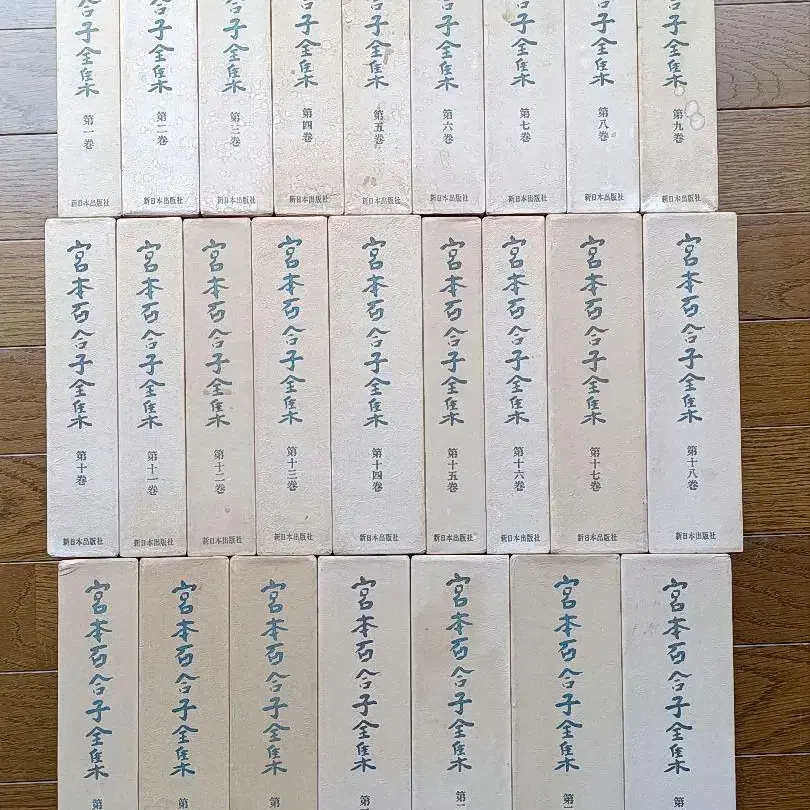 合子全集 第一巻 新日本出版社
合子全集 第二巻 新日本出版社
合子全集 第三巻 新日本出版社
合子全集 第四巻 新日本出版社
合子全集 第五巻 新日本出版社
合子全集 第六巻 新日本出版社
合子全集 第七巻 新日本出版社
合子全集 第八巻 新日本出版社
合子全集 第九巻 新日本出版社
宮本百合子全集 第十巻 新日本出版社
宮本百合子全集 第十一巻 新日本出版社
宮本百合子全集 第十二巻 新日本出版社
宮本百合子全集 第十三巻 新日本出版社
宮本百合子全集 第十四巻 新日本出版社
宮本百合子全集 第十五巻 新日本出版社
宮本百合子全集 第十六巻 新日本出版社
宮本百合子全集 第十七巻 新日本出版社
宮本百合子全集 第十八巻 新日本出版社
宮本百合子全集 第
宮本百合子全集 第
宮本百合子全集 第
宮本百合子全集 第
宮本百合子全集 第
宮本百合子全集 第
宮本百合子全集 第